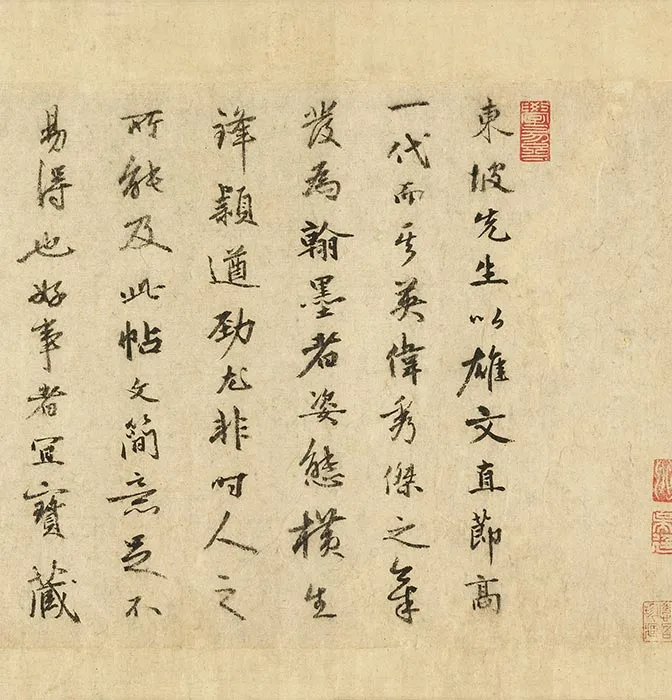 東坡先生以雄文直節高
一代而其英偉秀傑之氣
發爲翰墨者姿態橫生
鋒穎遒勁尤非時人之
所能及此帖文簡意足不
易得也好事者宜寶藏